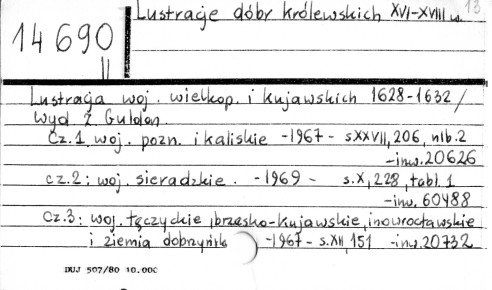 Lustracje dóbr królewskich XVI-XVIII w. 13
14690
II
Lustracja woj. wielkop. i kujawskich 1628-1632 /
wyd Z. Guldon.
Cz.1 woj. pozn. i kaliskie -1967- s XXVII, 206, nlb. 2
-inw. 20626
cz.2: woj. sieradzkie. -1969- s.X, 228, tabl. 1
-inw. 60488
cz.3: woj. łęczyckie, brzesko-kujawskie, inowrocławskie
i ziemia dobrzyńsk -1967- s.XII, 151 -inw. 20732
DUJ 507/80 10.000